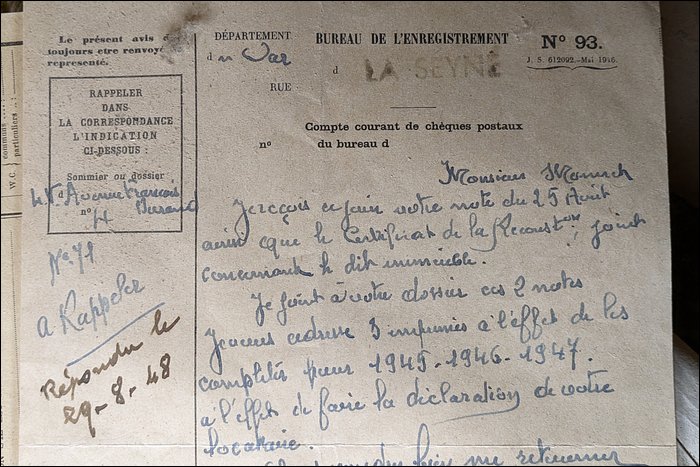 Le présent avis d
toujours etre renvoyé
représenté.
RAPPELER
DANS
LA CORRESPONDANCE
L'INDICATION
CI-DESSOUS :
Sommier ou dossier
Avenue François
n° 4 Durand
N° 71
A Rappeler
Répondu le
29-8-48
DÉPARTEMENT
d u Var
BUREAU DE L'ENREGISTREMENT
N° 93.
d LA SEYNE
J. S. 612092.-Mai 1946.
RUE
Compte courant de chèques postaux
n° du bureau d
Monsieur
Je reçois ce jour votre note du 25 Août
ainsi que le Certificat de la Reconston, joint
concernant le dit immeuble.
Je joint à votre dossier ces 2 notes
Je vous adresse 3 imprimés à l'effet de les
complétés pour 1945-1946-1947.
à l'effet de faire la déclaration de votre
locataire.
bien me retourner
W.C. particuliers